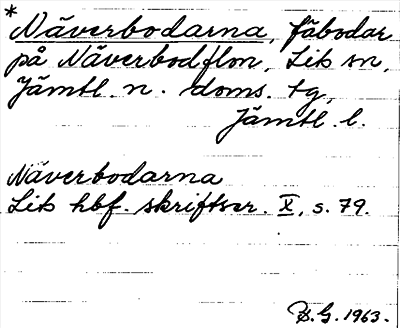 *
Näverbodarna, fäbodar
på Näverbodflon, Lits sn,
Jämtl. n. doms. tg,
Jämtl. l.
Näverbodarna
Lits hbf. skriftser. X, s. 79.
B. G. 1963.